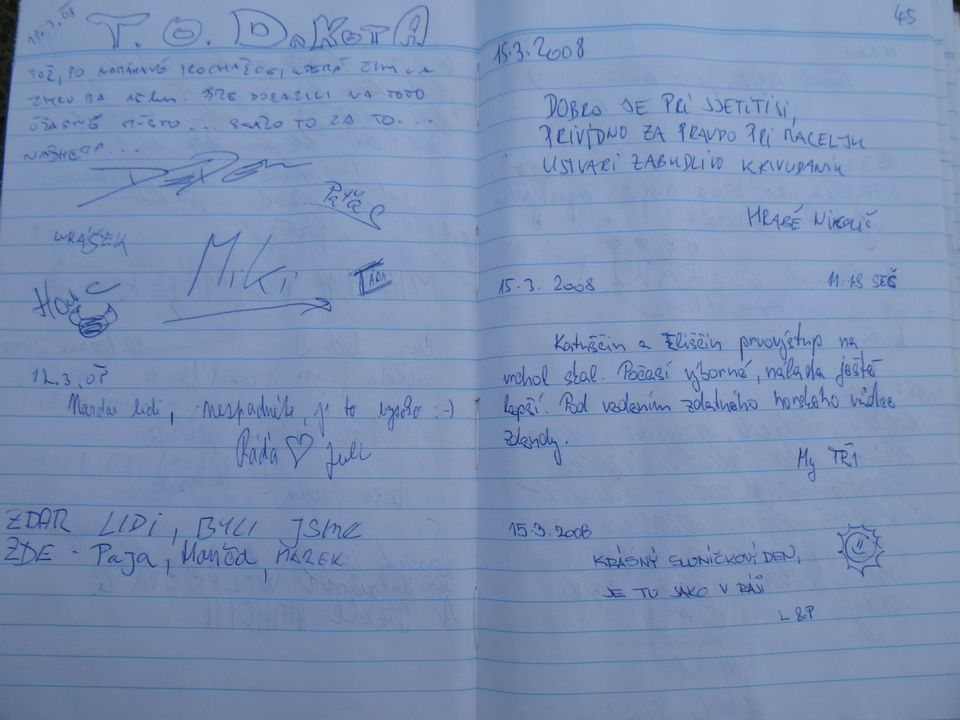 11.3.08
T.O. DAKOTA
TOŽ, PO
ZIMU BA 15 km. JSME DORAZILI NA TOTO
ÚŽASNÉ MÍSTO... STÁLO TO ZA TO...
Paťa
LUKÁŠEK
Miki
12.3.08
Nazdar lidi, nespadněte, je to vysoko :-)
Ráďa ♡ Juli
ZDAR LIDI, BYLI JSME
ZDE - Paja, Monča, MAREK
45
15.3.2008
DOBRO JE PRI SJETITISI,
PRIVIDNO ZA PRAVDO PRI NACELJU
USTVARI ZABUDLIVO KRIVUDANIU
HRABĚ Nikolič
15.3.2008 11:18 SEČ
Katuščin a Eliščin prvovýstup na
vrchol skal. Počasí výborné, nálada ještě
lepší. Pod vedením zdatného horského vůdce
Zdendy.
My TŘI
15.3.2008
KRÁSNÝ SLUNÍČKOVÝ DEN,
JE TU JAKO V RÁJI
L & P